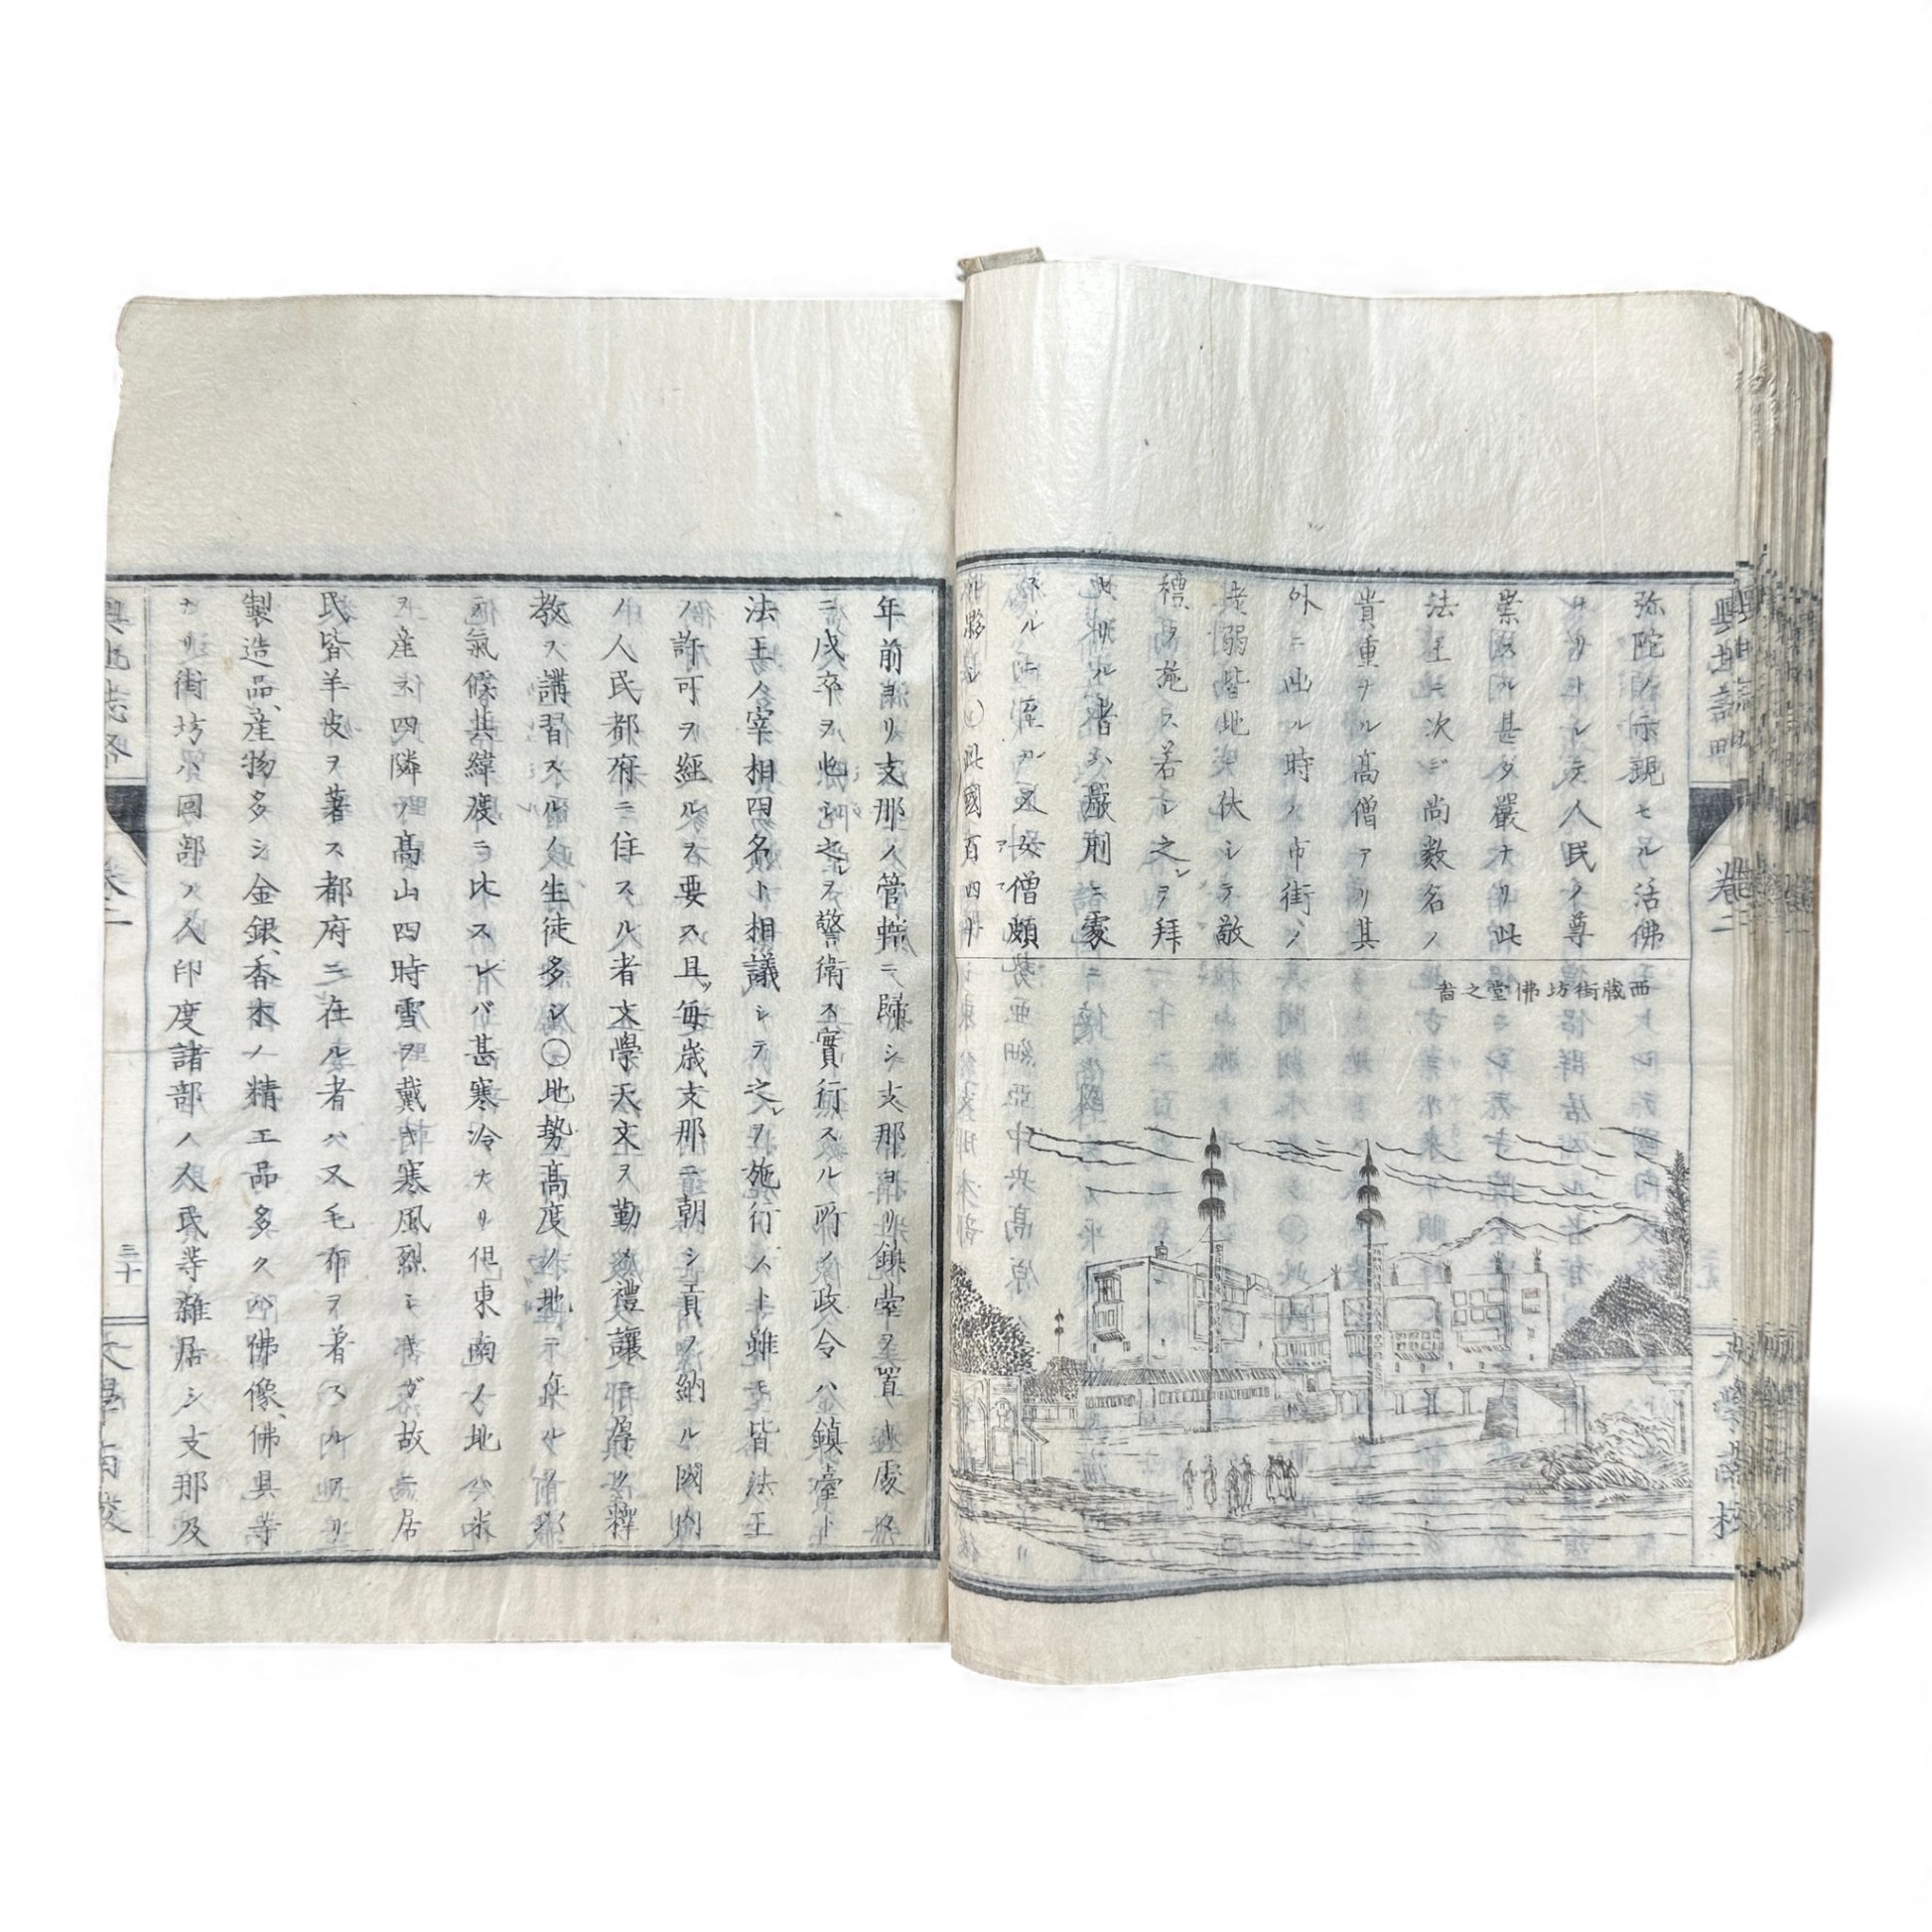 弥陀ノ示現セル活佛
ナリトシテ人民ノ尊
崇スル甚ダ嚴ナリ此
法王ニ次ギ尚数名ノ
貴重ナル高僧アリ其
外ニ出ル時ハ市街ノ
老弱皆地ニ伏シテ敬
禮ヲ施ス若シ之ヲ拜
セザル者ハ嚴刑ニ處
僧頗
此國百四十
西藏街坊佛堂之啚
輿地誌畧
卷二
大學南校
年前ヨリ支那ノ管轄ニ歸シ支那ヨリ鎮臺ヲ置キ處々
ニ戍卒ヲ屯シ之ヲ警衛ス實行スル所ノ政令ハ鎮臺ト
法王ノ宰相四名ト相議シテ之ヲ施行スト雖モ皆法王
ノ許可ヲ經ルヲ要ス且毎歳支那ニ朝シ貢ヲ納ル國内
ノ人民都府ニ住スル者文學天文ヲ勤メ禮讓ヲ尊ビ釋
教ヲ講習スルノ生徒多シ〇地勢高度ノ地ニ在ルヲ以テ
氣候其緯度ニ比スレバ甚寒冷ナリ但東南ノ地ハ米
ヲ産ス四隣ノ高山四時雪ヲ戴キ寒風烈シキガ故ニ居
民皆羊皮ヲ著ス都府ニ在ル者ハ又毛布ヲ著スルアリ
製造品産物多シ金銀香木ノ精工品多ク佛像佛具等
ナリ街坊ハ回部ノ人印度諸部ノ人民等雜居シ支那及
輿地誌畧
卷二
三十
大學南校